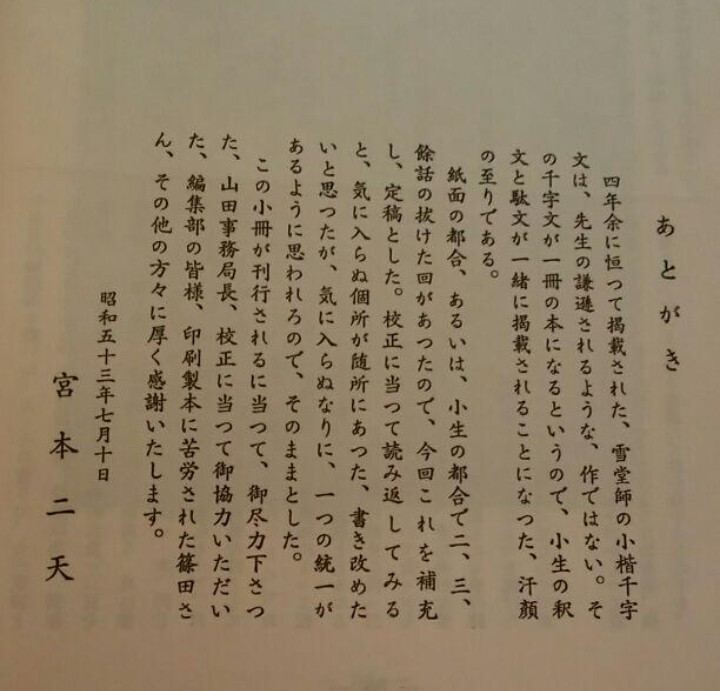 あとがき
四年余に恒つて掲載された、雪堂師の小楷千字
文は、先生の謙遜されるような、作ではない。そ
の千字文が一冊の本になるというので、小生の釈
文と駄文が一緒に掲載されることになつた、汗顔
の至りである。
紙面の都合、あるいは、小生の都合で二、三、
餘話の抜けた回があつたので、今回これを補充
し、定稿とした。校正に当つて読み返してみる
と、気に入らぬ個所が随所にあつた、書き改めた
いと思つたが、気に入らぬなりに、一つの統一が
あるように思われろので、そのままとした。
この小冊が刊行されるに当つて、御尽力下さつ
た、山田事務局長、校正に当つて御協力いただい
た、編集部の皆様、印刷製本に苦労された篠田さ
ん、その他の方々に厚く感謝いたします。
昭和五十三年七月十日
宮本二天